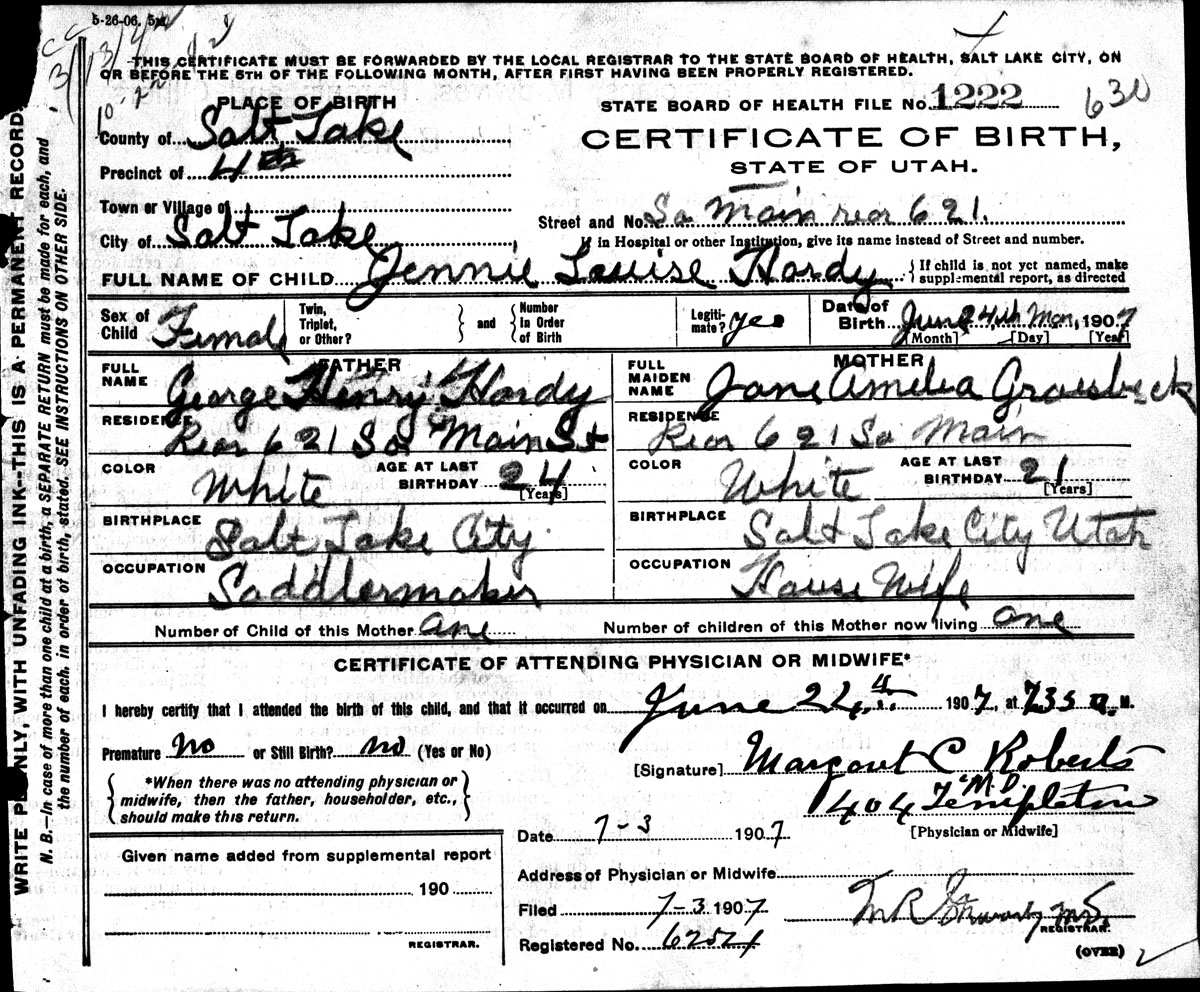 5-26-06. 5M
THIS CERTIFICATE MUST BE FORWARDED BY THE LOCAL REGISTRAR TO THE STATE BOARD OF HEALTH, SALT LAKE CITY, ON
OR BEFORE THE 5TH OF THE FOLLOWING MONTH, AFTER FIRST HAVING BEEN PROPERLY REGISTERED.
PLACE OF BIRTH
STATE BOARD OF HEALTH FILE No. 1222 630
County of Salt Lake
CERTIFICATE OF BIRTH,
Precinct of 4th
STATE OF UTAH.
Town or Village of
Street and No. So Main rear 621.
City of Salt Lake
If in Hospital or other Institution, give its name instead of Street and number.
FULL NAME OF CHILD Jennie Louise Hardy { If child is not yet named, make
supplemental report, as directed
Sex of Child Female Twin, Triplet, or Other? } and { Number In Order of Birth Legiti-mate? yes Date of Birth June 24th Mon, 1907
[Month] [Day] [Year]
FATHER MOTHER
FULL NAME George Henry Hardy FULL MAIDEN NAME Jane Amelia Groesbeck
RESIDENCE Rear 621 So Main St RESIDENCE Rear 621 So Main
COLOR White AGE AT LAST BIRTHDAY 24 [Years] COLOR White AGE AT LAST BIRTHDAY 21 [Years]
BIRTHPLACE Salt Lake City BIRTHPLACE Salt Lake City Utah
OCCUPATION Saddlermaker OCCUPATION House Wife
Number of Child of this Mother one Number of children of this Mother now living one
CERTIFICATE OF ATTENDING PHYSICIAN OR MIDWIFE*
I hereby certify that I attended the birth of this child, and that it occurred on June 24th 1907, at 735 a. M.
Premature no or Still Birth? no (Yes or No)
[Signature] Margaret C Roberts
M.D.
*When there was no attending physician or
midwife, then the father, householder, etc.,
should make this return.
404 Templeton
[Physician or Midwife]
Date 7-3 1907
Given name added from supplemental report
Address of Physician or Midwife
190
Filed 7-3 1907
REGISTRAR.
Registered No. 6254
REGISTRAR.
(OVER)
WRITE PLAINLY, WITH UNFADING INK--THIS IS A PERMANENT RECORD
N. B.—In case of more than one child at a birth, a SEPARATE RETURN must be made for each, and
the number of each. in order of birth, stated. SEE INSTRUCTIONS ON OTHER SIDE.